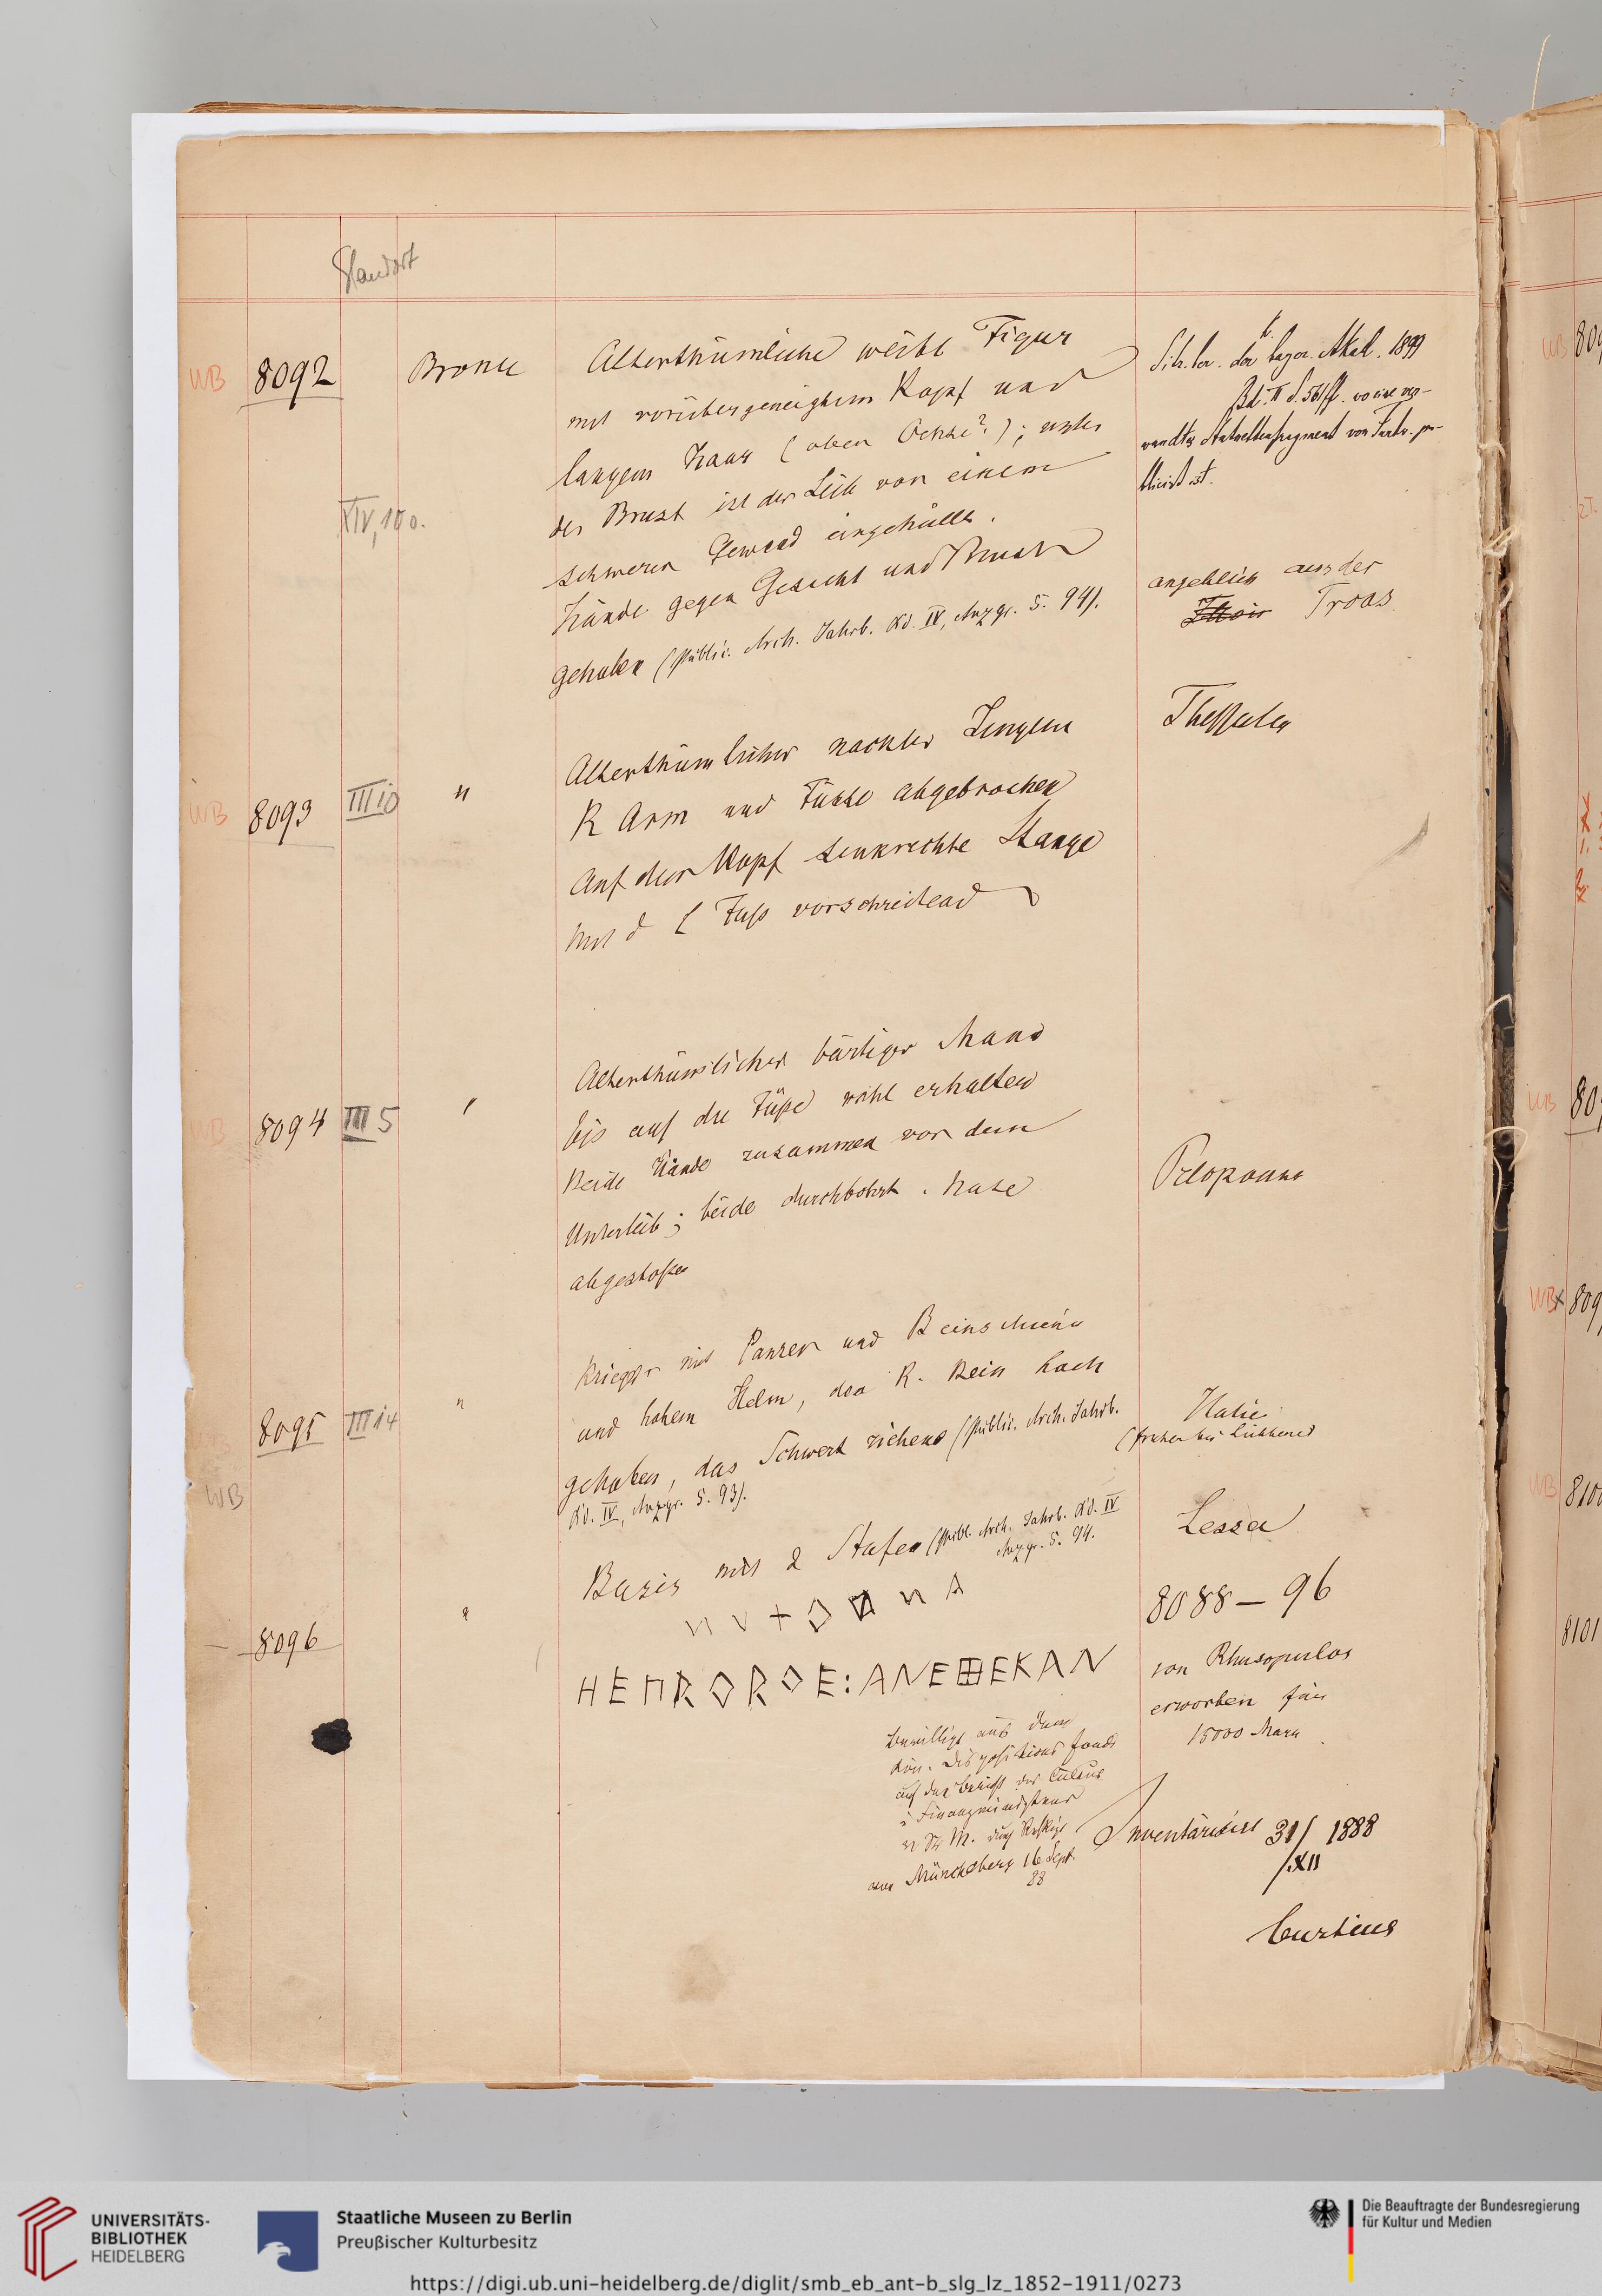 Standort
WB 8092 Bronce
Alterthümliche weibl Figur
mit vorübergeneigtem Kopf und
langem Haar (oben Oehse?); unter
der Brust ist der Leib von einem
schweren Gewand eingehüllt.
Hände gegen Gesicht und Brust
gehoben (Public. Arch. Jahrb. Bd. IV, Anzgr. S. 94).
Sitz. ber. der k. bayer. Akad. 1899
Bd. II S. 561 ff. wo eine ver-
wandtes Statuettenfragment von Furtw. pu-
bliciert ist.
XIV, 100.
angeblich aus der
Troas
WB 8093 III 10 "
Alterthümlicher nackter Jüngling
R Arm und Füsse abgebrochen
Auf dem Kopf senkrechte Stange
Mit d L Fuß vorschreitend
Thessalien
WB 8094 III 5 "
Alterthümlicher bärtiger Mann
bis auf die Füße wohl erhalten
Beide Hände zusammen vor dem
Unterleib; beide durchbohrt. Nase
abgestoßen
Peloponnes
8095 III 14 "
WB
Krieger mit Panzer und Beinschienen
und hohem Helm, das R. Bein hoch
gehoben, das Schwert ziehend (Public. Arch. Jahrb.
Bd. IV, Anzgr. S. 93).
Italien
(früher bei
8096 "
Basis mit 2 Stufen (Publ. Arch. Jahrb. Bd. IV
Anzgr. S. 94.
Lessa
HEΠROROE:ANEΘEKAN
8088 – 96
von Rhusopulos
erworben für
15000 Mark
bewilligt aus dem
Kön. Dispositions fonds
auf den Bericht der Cultus
u Finanzminister
v. Sr. M. durch
vom Müncheberg 16 Sept.
88
Inventarisirt 31/XII 1888
Curtius
WB
WB
WB
WB
8101
UNIVERSITÄTS-
BIBLIOTHEK
HEIDELBERG
Staatliche Museen zu Berlin
Preußischer Kulturbesitz
Die Beauftragte der Bundesregierung
für Kultur und Medien
https://digi.ub.uni-heidelberg.de/diglit/smb_eb_ant-b_slg_lz_1852-1911/0273